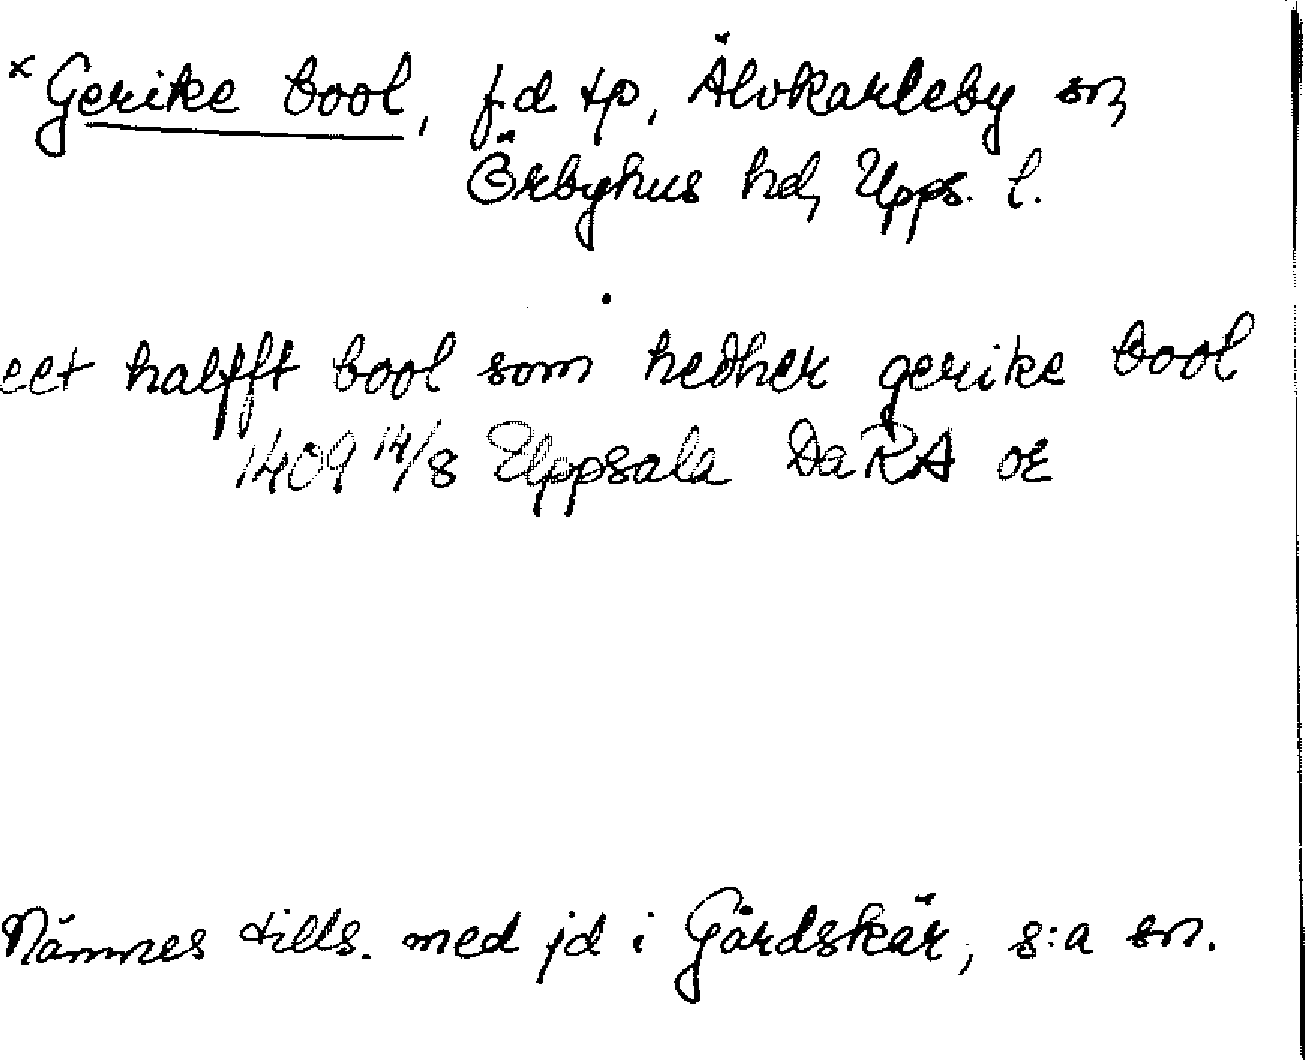 × Gerike bool, f.d. tp, Älvkarleby sn,
Örbyhus hd, Upps. l.
eet halfft bool som hedher gerike bool
1409 14/8 Uppsala DaRA or
Nämnes tills. med jd i Gårdskär, s:a sn.